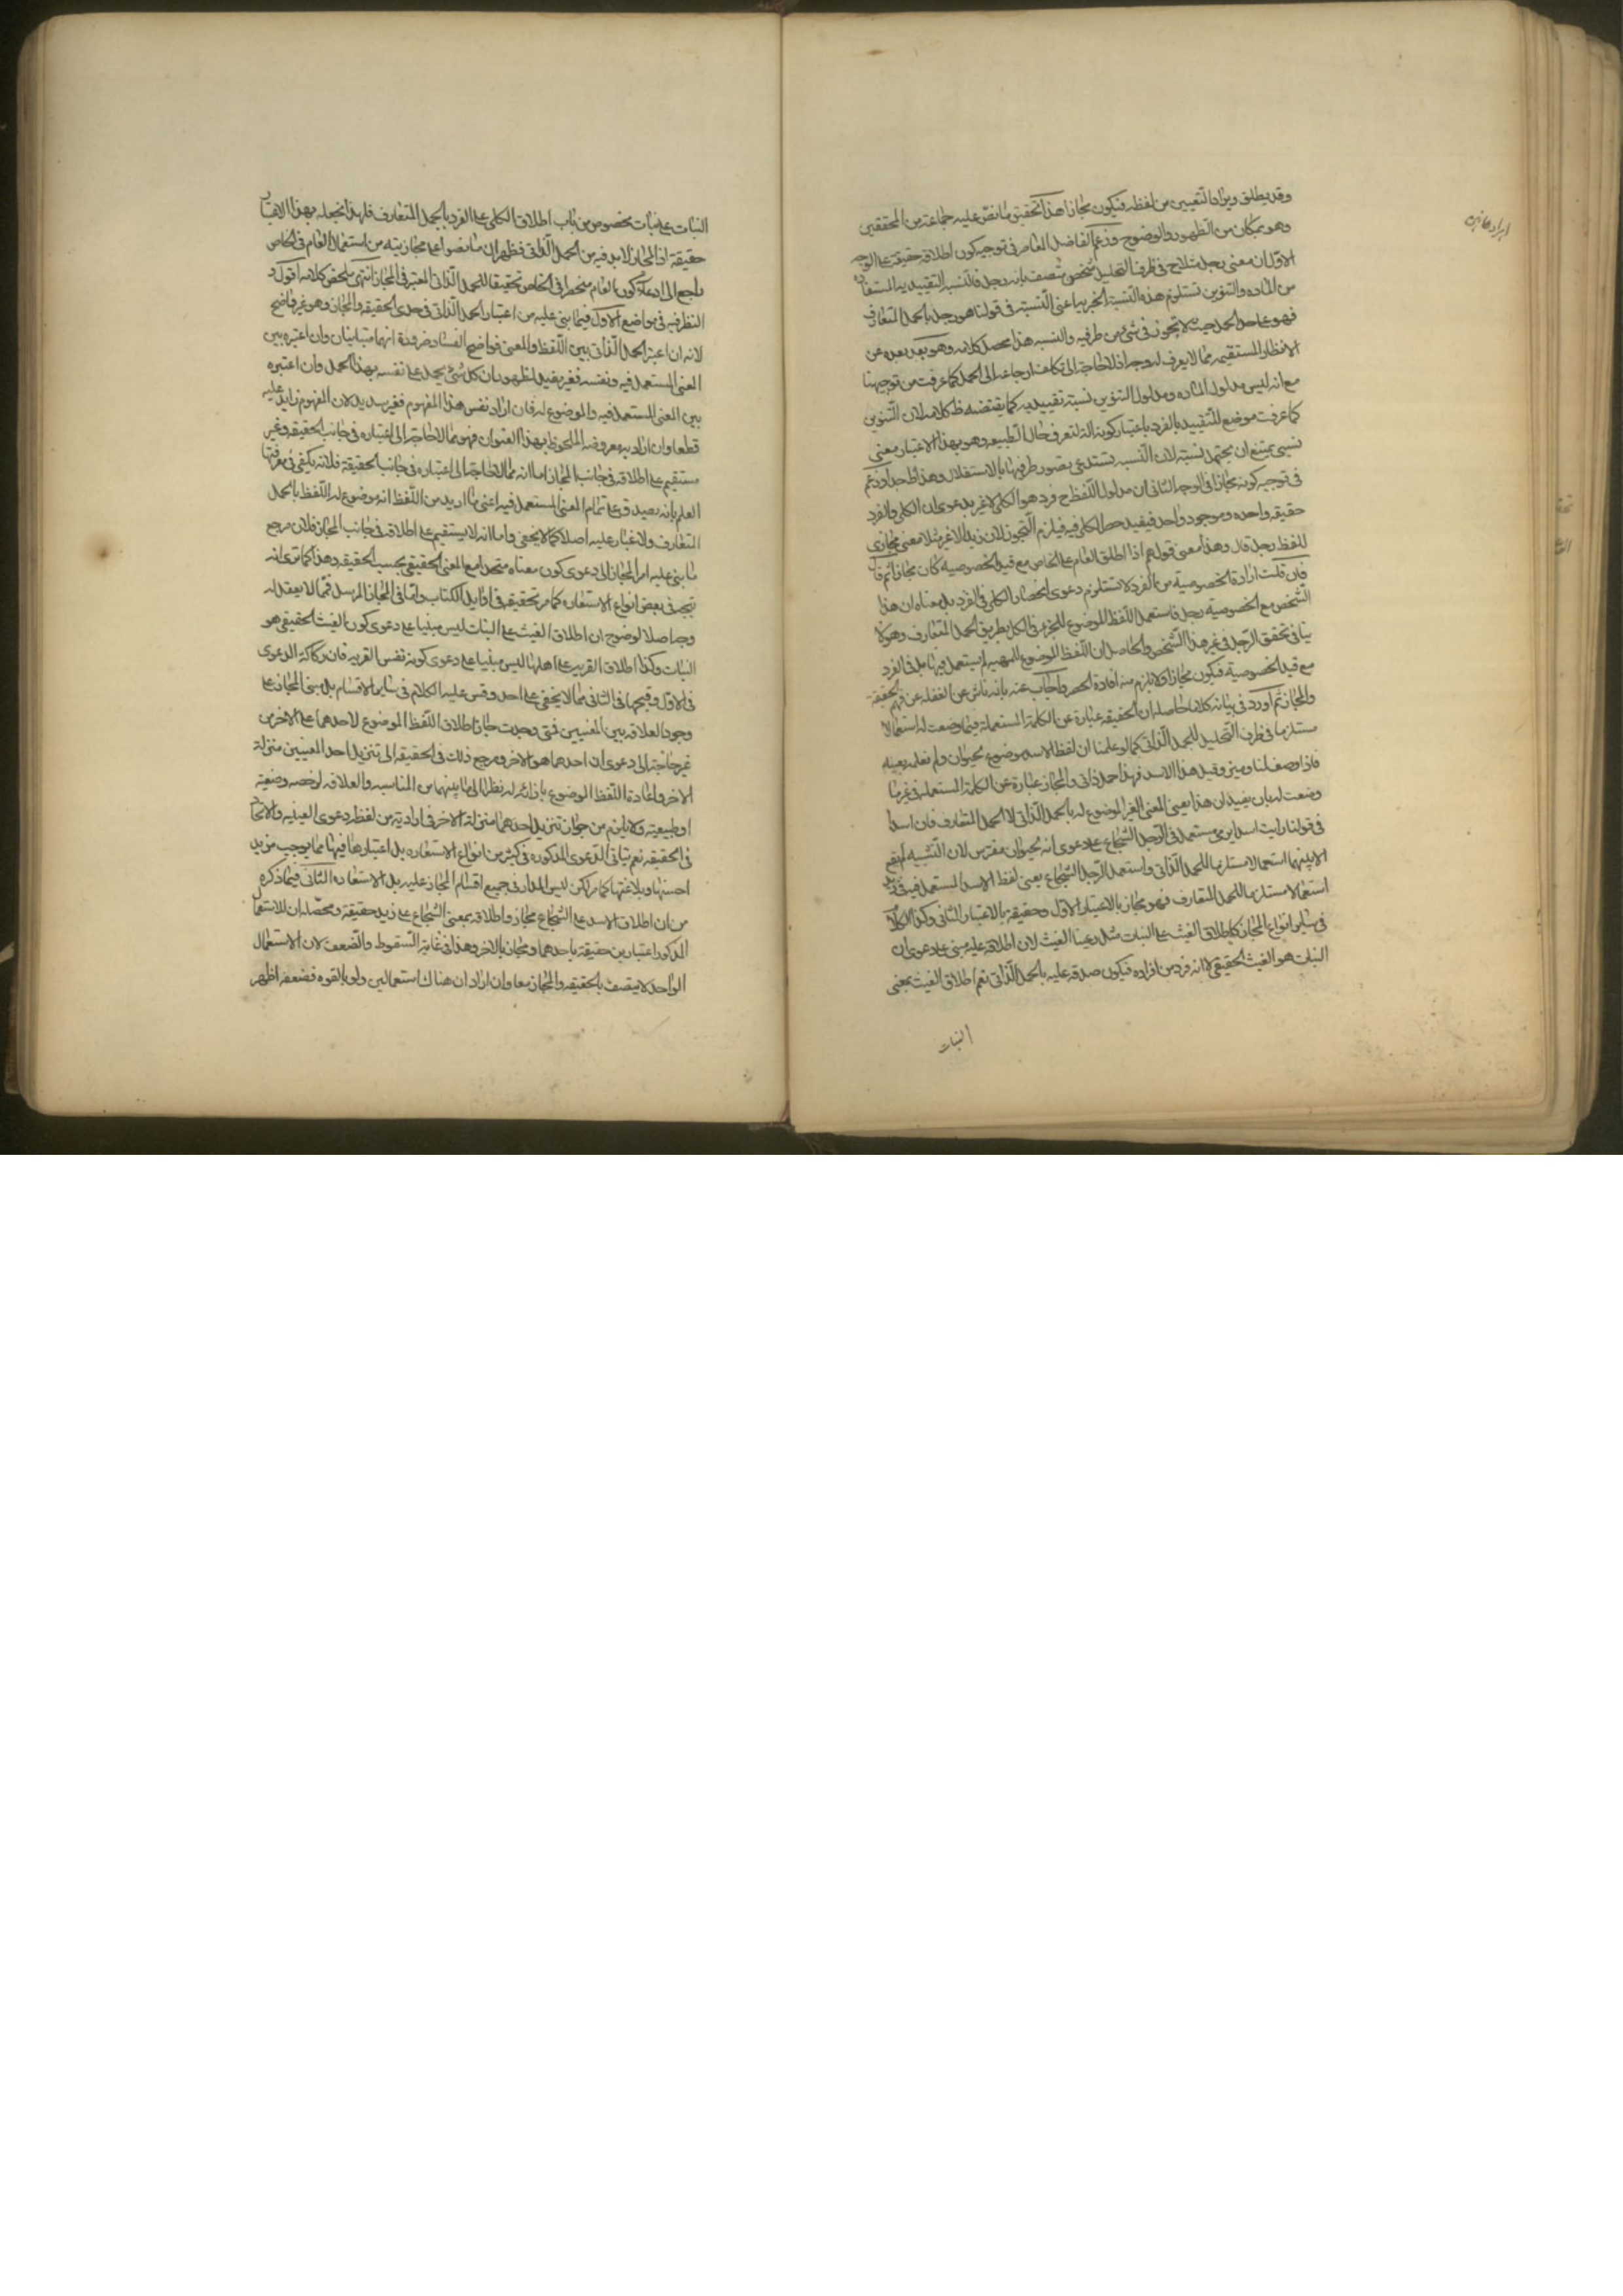 وقد يطلق ويراد التعيين من لفظه فيكون مجازا هذا تحقيق ما نص عليه جماعة من المحققين
وهو بمكان من الظهور والوضوح وزعم الفاضل المعاصر في توجيه كون اطلاقه حقيقة على الوجه
الاول ان معنى رجل ينحل في ظرف التحليل شخص متصف بانه رجل فالنسبة التقييدية المستفاده
من الماده والتنوين تستلزم هذه النسبة الخبرية اعنى النسبة في قولنا هو رجل بالحمل المتعارف
فهو على حد الحمل حيث لا تجوز في شئ من طرفيه والنسبه هذا محصل كلامه وهو بعد بعده عن
الانظار المستقيمه مما لا يعرف له وجه اذ لا حاجة الى تكلف ارجاعه الى الحمل كما عرفت من توجيهنا
مع انه ليس مدلول الماده ومدلول التنوين نسبة تقييديه كما يقتضيه ظ كلامه لان التنوين
كما عرفت موضع للتقييد بالفرد باعتبار كونه الة لتعرف حال الطبيعه وهو بهذا الاعتبار معنى
نسبى يمتنع ان يحتمل نسبة لان النسبه تستدعى تصور طرفيها بالاستقلال وهذا ظ جدا وزعم
في توجيه كونه مجازا في الوجه الثانى ان مدلول اللفظ ح فرد هو الكلى لا غير بدعوى ان الكلى والفرد
حقيقه واحده وموجود واحد فيفيد حصر الكلى فيه فيلزم التجوز لان زيد لا غير مثلا معنى مجازى
للفظ رجل قال وهذا معنى قولهم اذا اطلق العام على الخاص مع قيد الخصوصية كان مجازا ثم قال
فان قلت ارادة الخصوصية من الفرد لا تستلزم دعوى انحصار الكلى في الفرد بل معناه ان هذا
الشخص مع الخصوصية رجل فاستعمل اللفظ الموضوع للجزء في الكل بطريق الحمل المتعارف وهو لا
ينافى تحقق الرجل في غير هذا الشخص والحاصل ان اللفظ الموضوع للمهيه لم يستعمل فيها بل في الفرد
مع قيد الخصوصية فيكون مجازا ولا يلزم منه افادة الحصر واجاب عنه بانه ناش عن الغفله عن فهم الحقيقة
والمجاز ثم اورد في بيانه كلاما حاصله ان الحقيقه عبارة عن الكلمة المستعملة فيما وضعت له استعمالا
مستلزما في ظرف التحليل للحمل الذاتى كما لو علمنا ان لفظ الاسد موضوع لحيوان ولم نعلمه بعينه
فاذا وصف لنا وميز وقيل هذا الاسد فهذا حمل ذاتى والمجاز عبارة عن الكلمة المستعملة في غير ما
وضعت له بان يفيد ان هذا يعنى المعنى الغير الموضوع له بالحمل الذاتى لا الحمل المتعارف فان اسدا
في قولنا رايت اسدا يرمى مستعمل في الرجل الشجاع على دعوى انه حيوان مفترس لان التشبيه لم يقع
الا بينهما استعمالا مستلزما للحمل الذاتى واستعمل الرجل الشجاع يعنى لفظ الاسد المستعمل فيه في زيد
استعمالا مستلزما للحمل المتعارف فهو مجاز بالاعتبار الاول وحقيقة بالاعتبار الثانى وكذا الكلام
في سائر انواع المجاز كاطلاق الغيث على النبات مثل رعينا الغيث لان اطلاقه عليه مبنى على دعوى ان
النبات هو الغيث الحقيقى لا انه فرد من افراده فيكون صدقه عليه بالحمل الذاتى نعم اطلاق الغيث بمعنى
النبات
النبات على نبات مخصوص من باب اطلاق الكلى على الفرد بالحمل المتعارف فلهذا نجعله بهذا الاعتبار
حقيقة اذ المجاز لا بد فيه من الحمل الذاتى فظهر ان ما نصوا على مجازيته من استعمال العام في الخاص
راجع الى ادعاء كون العام منحصرا في الخاص تحقيقا للحمل الذاتى المعتبر في المجاز انتهى ملخص كلامه اقول و
النظر فيه في مواضع الاول فيما بنى عليه من اعتبار الحمل الذاتى في حدى الحقيقه والمجاز وهو غير واضح
لانه ان اعتبر الحمل الذاتى بين اللفظ والمعنى فواضح الفساد ضرورة انهما متباينان وان اعتبره بين
المعنى المستعمل فيه ونفسه فغير مفيد لظهور ان كل شئ يحمل على نفسه بهذا الحمل وان اعتبره
بين المعنى المستعمل فيه والموضوع له فان اراد نفس هذا المفهوم فغير سديد لان المفهوم زايد عليه
قطعا وان اراد به معروضه الملحوظ بهذا العنوان فهو مما لا حاجة الى اعتباره في جانب الحقيقه وغير
مستقيم على اطلاقه في جانب المجاز اما انه مما لا حاجة الى اعتباره في جانب الحقيقة فلانه يكفى في معرفتها
العلم بانه يصدق على تمام المعنى المستعمل فيه اعنى ما اريد من اللفظ انه موضوع له اللفظ بالحمل
المتعارف ولا غبار عليه اصلا كما لا يخفى واما انه لا يستقيم على اطلاقه في جانب المجاز فلان مرجع
ما بنى عليه امر المجاز الى دعوى كون معناه متحدا مع المعنى الحقيقى بحسب الحقيقه وهذا كما ترى انه
يتجه في بعض انواع الاستعاره كما مر تحقيقه في اوايل الكتاب واما في المجاز المرسل فمما لا يعقل له
وجه اصلا لوضوح ان اطلاق الغيث على النبات ليس مبنيا على دعوى كون الغيث الحقيقى هو
النبات وكذا اطلاق القرية على اهلها ليس مبنيا على دعوى كونه نفس القريه فان ركاكة الدعوى
في الاول وقبحها في الثانى مما لا يخفى على احد وقس عليه الكلام في ساير الاقسام بل مبنى المجاز على
وجود العلاقه بين المعنيين فمتى وجدت جاز اطلاق اللفظ الموضوع لاحدهما على الاخر من
غير حاجة الى دعوى ان احدهما هو الاخر ومرجع ذلك في الحقيقه الى تنزيل احد المعنيين منزلة
الاخر واعادة اللفظ الموضوع بازائه له نظرا الى ما بينهما من المناسبه والعلاقه لرخصه وضعية
او طبيعيه ولا يلزم من جواز تنزيل احدهما منزلة الاخر في ارادته من لفظه دعوى العينيه والاتحاد
في الحقيقه نعم يتاتى الدعوى المذكوره في كثير من انواع الاستعاره بل اعتبارها فيها مما يوجب مزيد
حسنها وبلاغتها كما مر لكن ليس المدار في جميع اقسام المجاز عليه بل الاستعاره الثانى فيما ذكره
من ان اطلاق الاسد على الشجاع مجاز واطلاقه بمعنى الشجاع على زيد حقيقة ومحصله ان للاستعمال
المذكور اعتبارين حقيقة باحدهما ومجاز بالاخر وهذا في غاية السقوط والضعف لان الاستعمال
الواحد لا يتصف بالحقيقه والمجاز معا وان اراد ان هناك استعمالين ولو بالقوه فضعفه اظهر